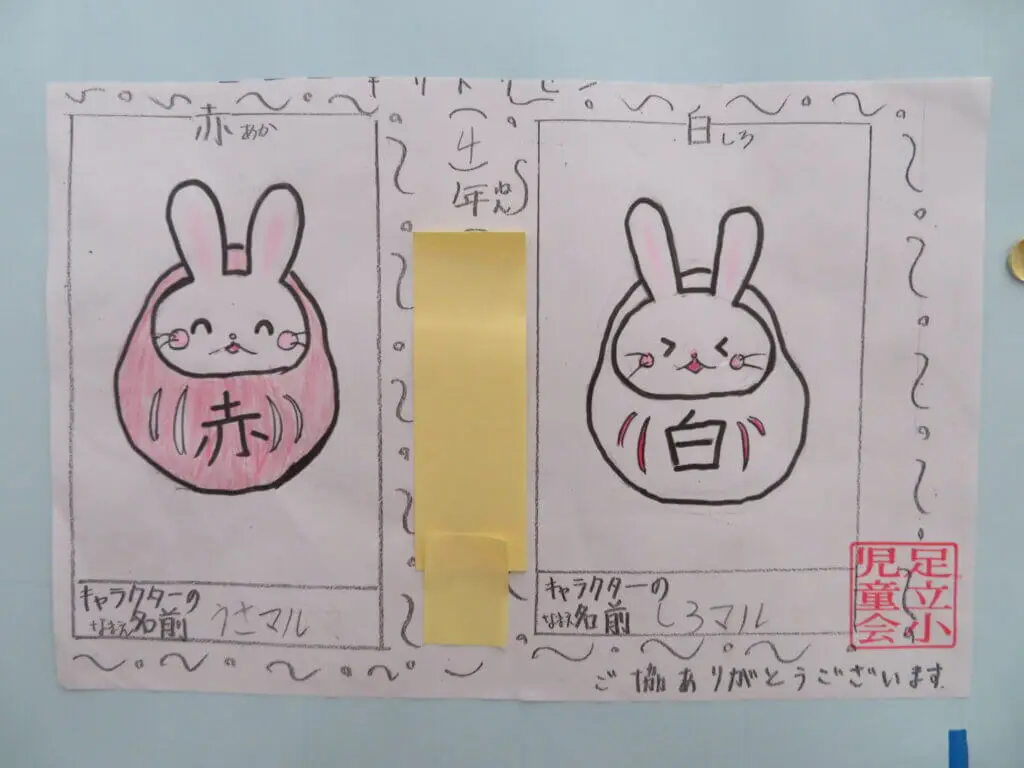 赤 あか
4年 ねん
白 しろ
赤
白
キャラクターの
名前 なまえ うさマル
キャラクターの
名前 なまえ しろマル
足立小
児童会
ご協ありがとうございます